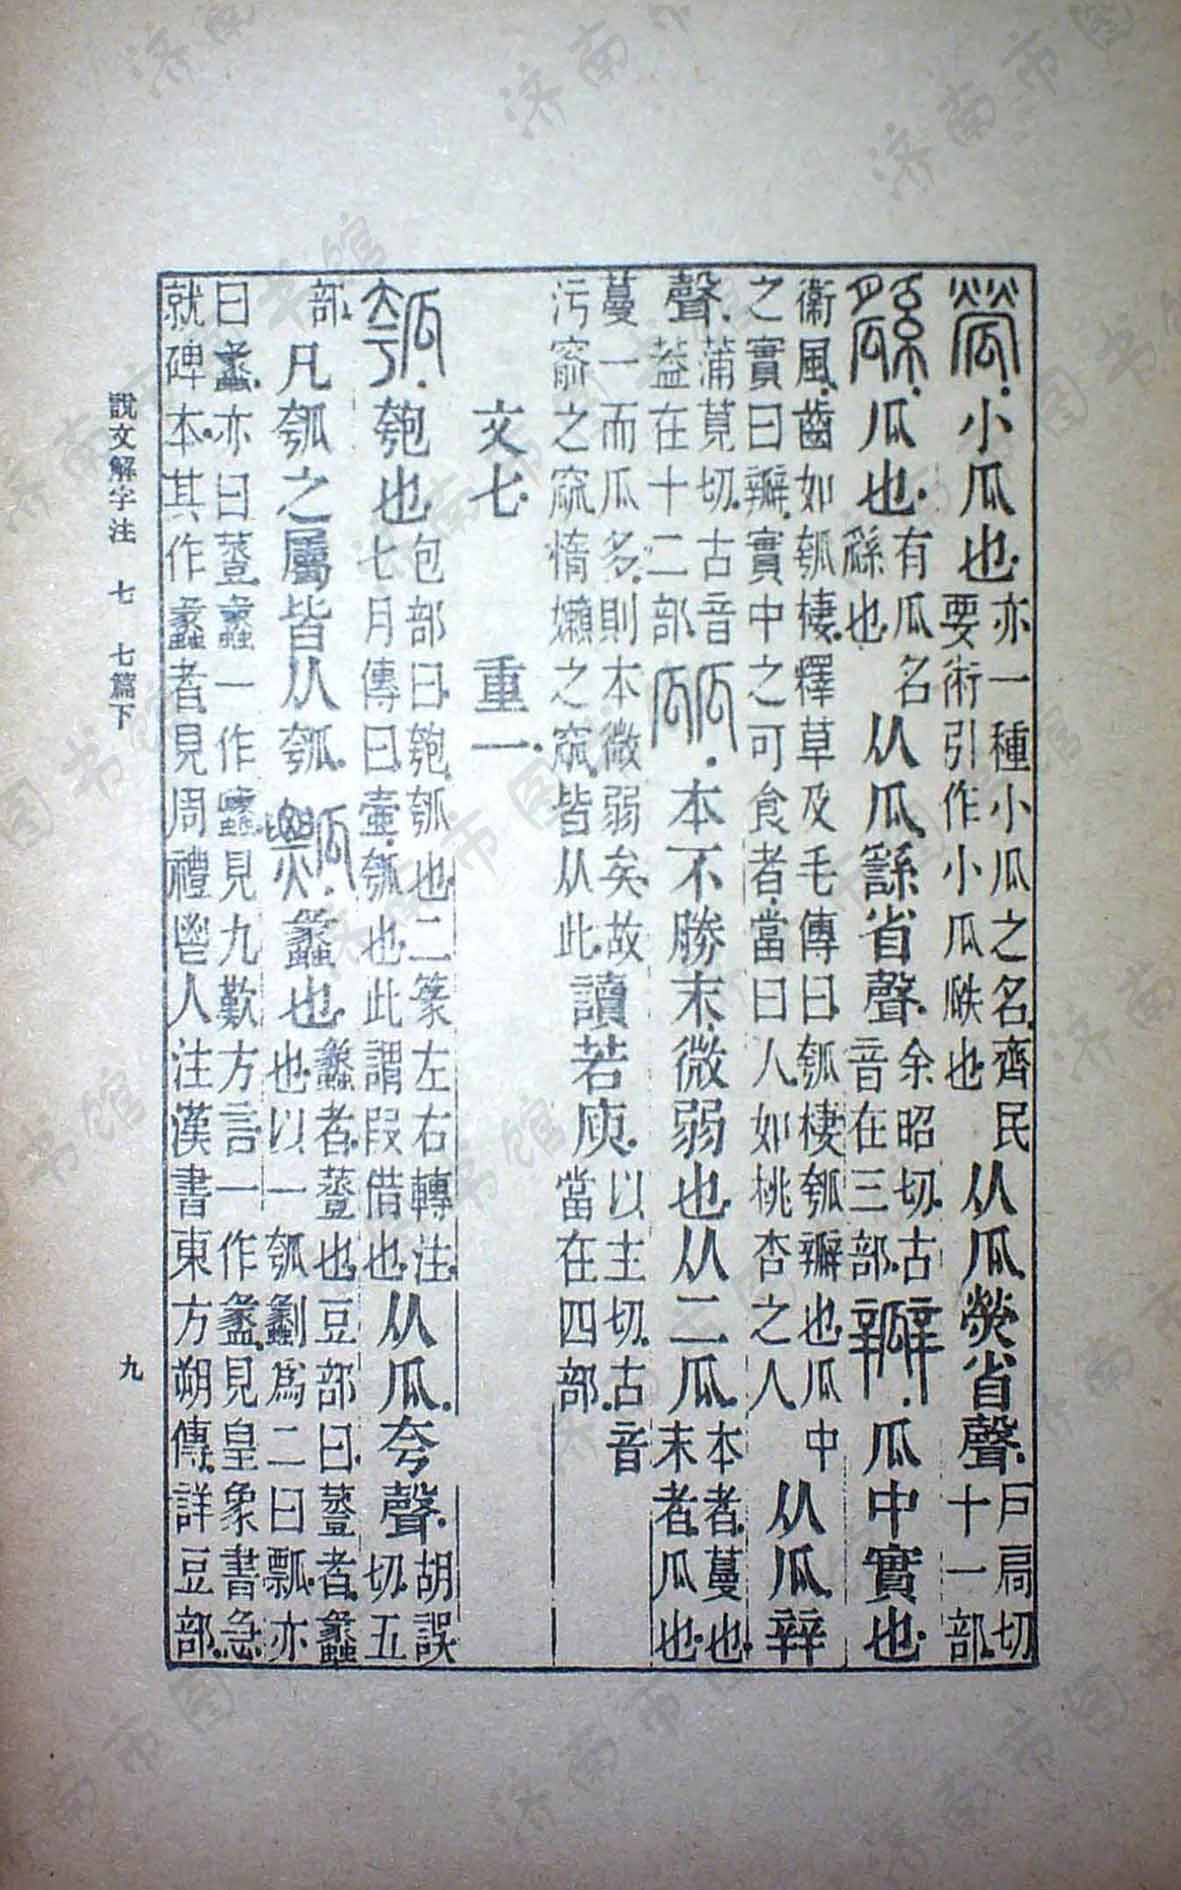 小瓜也。亦一種小瓜之名。齊民要術引作小瓜瓞也从瓜。熒省聲。戶扃切十一部。
瓜也。有瓜名也从瓜。䌛省聲。余昭切。古音在三部。瓣。瓜中實也。
衞風。齒如瓠棲。釋草及毛傳曰。瓠棲瓠瓣也瓜中之實曰瓣。實中之可食者。當曰人。如桃杏之人从瓜。辡
聲。蒲莧切。古音葢在十二部。㼌。本不勝末。微弱也。从二瓜。本者。蔓也。末者。瓜也。
蔓一而瓜多。則本微弱矣。故污窬之窳惰嬾之窳。皆从此。讀若庾。以主切。古音當在四部。
文七。 重一。
瓠。匏也。包部曰。匏。瓠也。二篆左右轉注。七月傳曰。壷。瓠也。此謂叚借也。从瓜。夸聲。胡誤切。五
部。凡瓠之屬皆从瓠。瓢。蠡也。蠡者。𧯷也。豆部曰。𧯷者。蠡也。以一瓠劙爲二曰瓢。亦
曰蠡。亦曰𧯷蠡。一作見九歎。方言一作盠。見皇象書急
就碑本。其作蠡者。見周禮鬯人注漢書東方朔傳。詳豆部。
說文解字注 七 七篇下 九
济南市图书馆